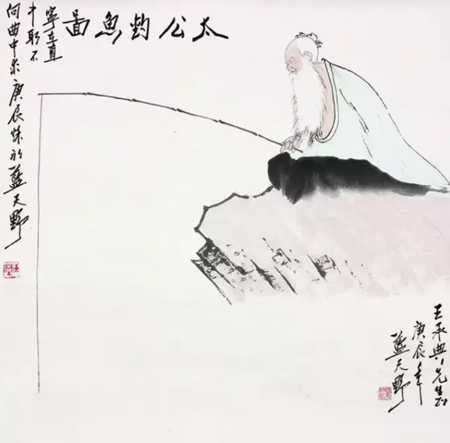 太公钓鱼图
寧在直
中取不
向曲中求庚辰秋初蓝天野
王承典先生
庚辰年
蓝天野